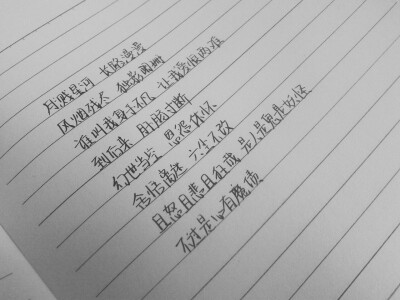 月溅星河 长路漫漫
风烟残尽 独影阑珊
谁叫我身手不凡 让我爱恨两难
到后来 肝肠寸断
幻世当空 恩怨休怀
舍悟离迷 六尘不改
且怒且悲且狂哉 是人是鬼是妖怪
不过是 心有魔债